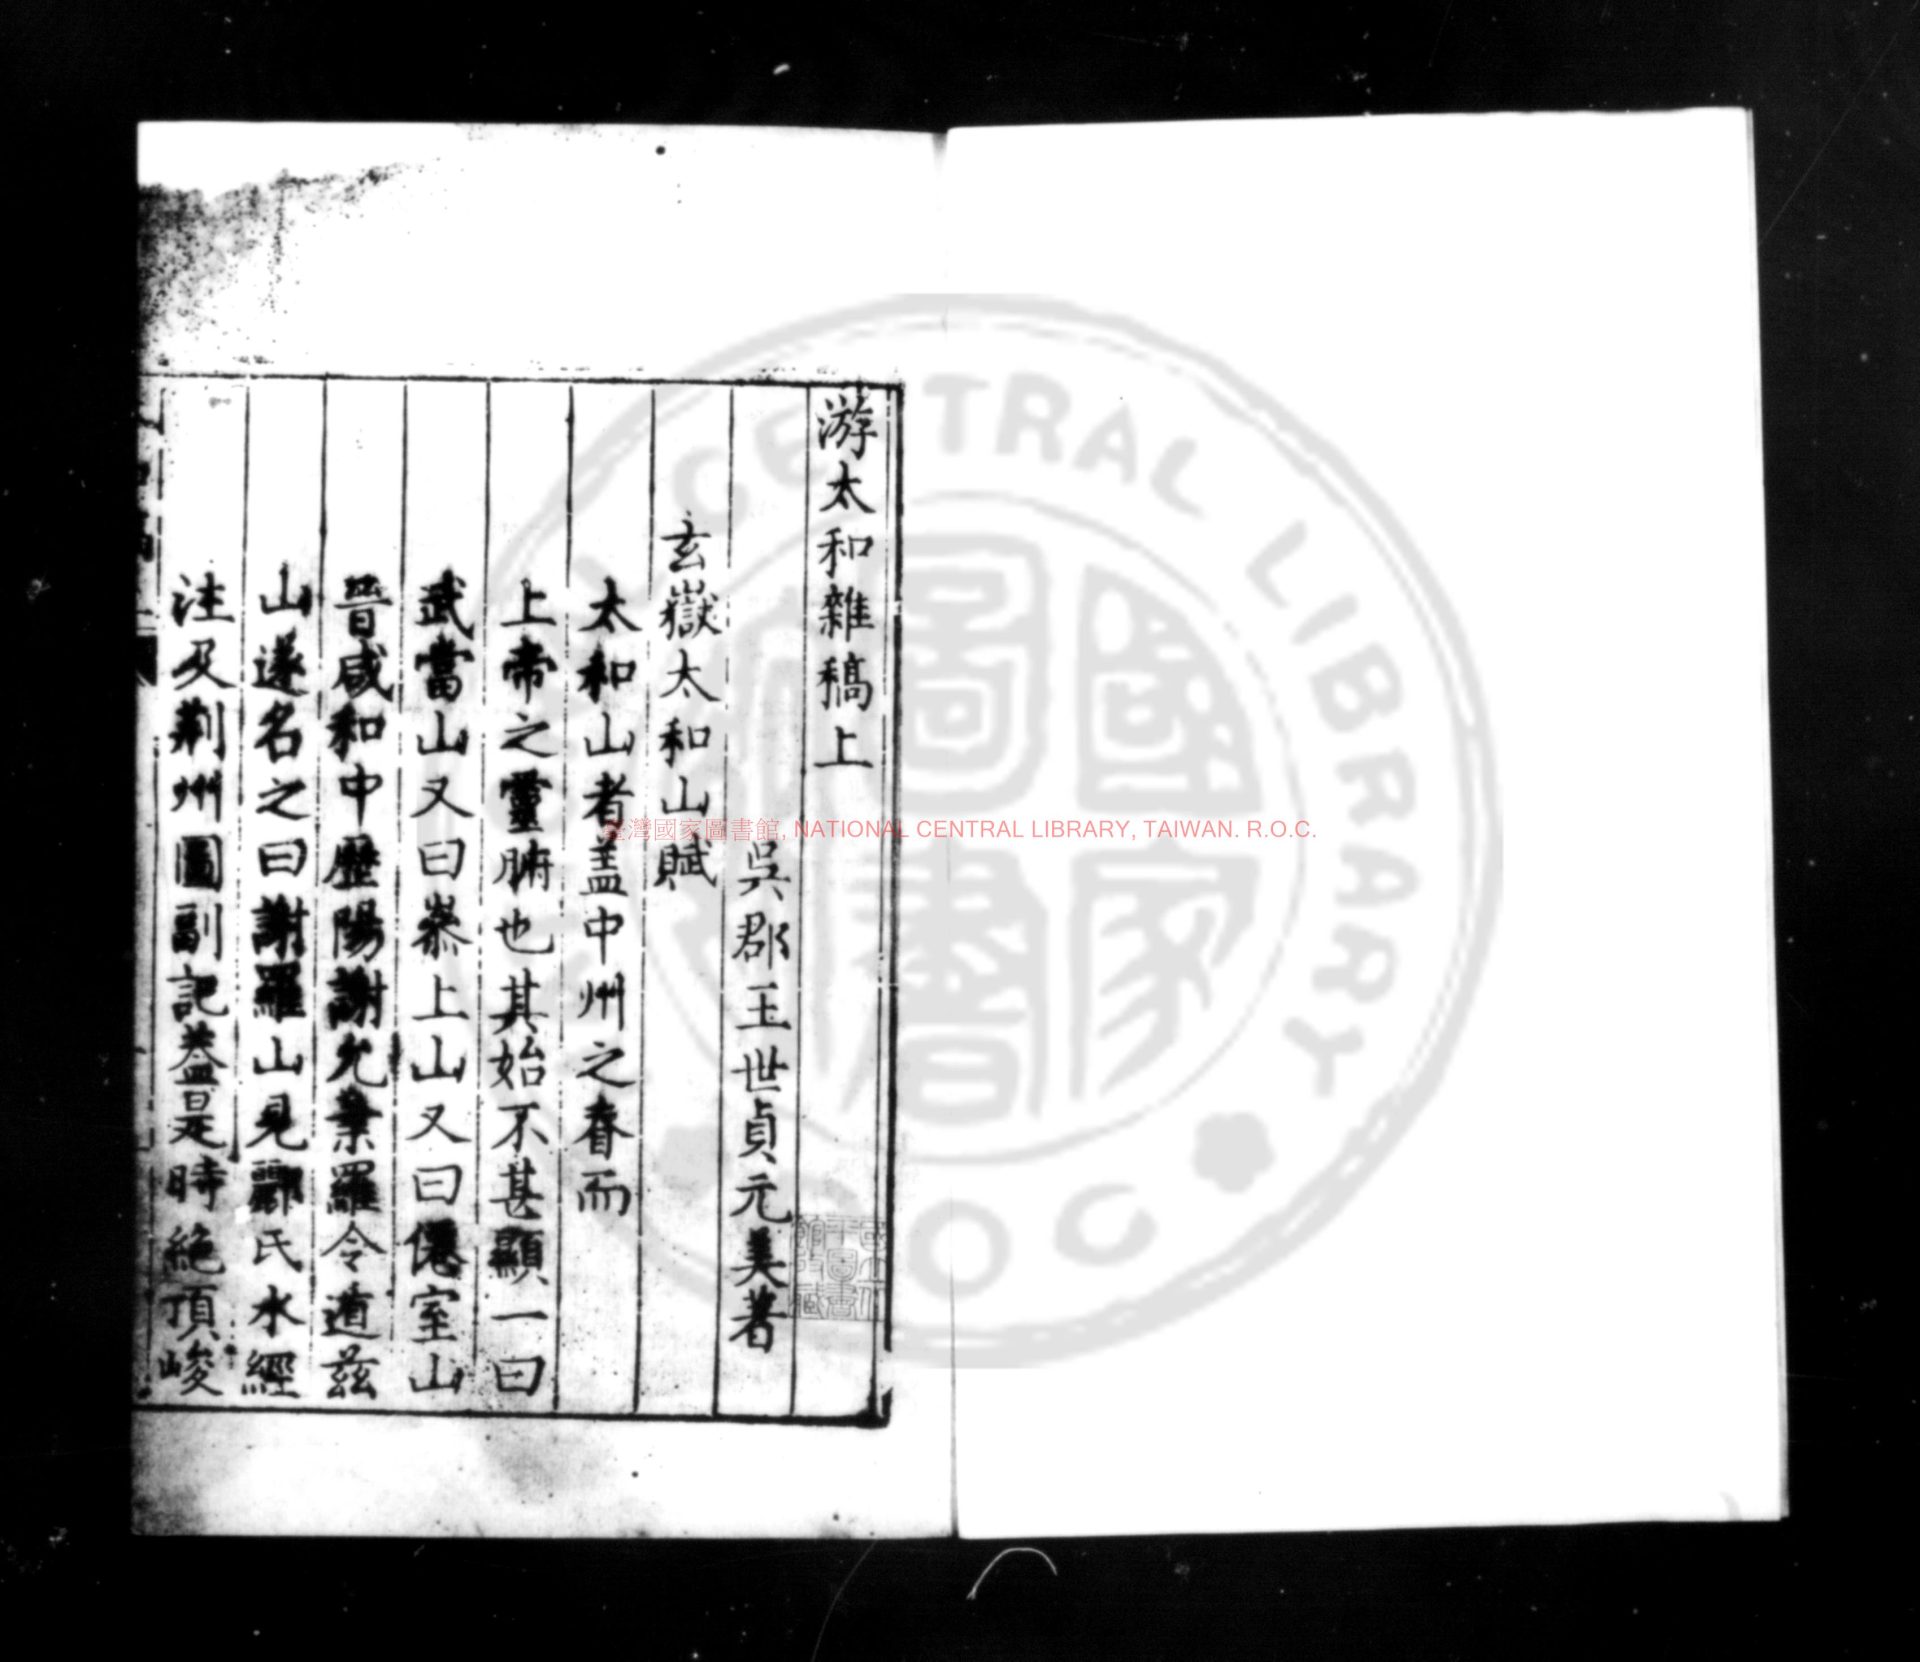 游太和雜稿上
吳郡王世貞元美著
玄嶽太和山賦
太和山者盖中州之脊而
上帝之靈腑也其始不甚顯一曰
武當山又曰嵾上山又曰僊室山
晉咸和中歷陽謝允棄羅令遁茲
山遂名之曰謝羅山見酈氏水經
注及荆州圖副記蓋是時絶頂峻
臺灣國家圖書館, NATIONAL CENTRAL LIBRARY, TAIWAN. R.O.C.
CENTRAL LIBRARY
國家圖書